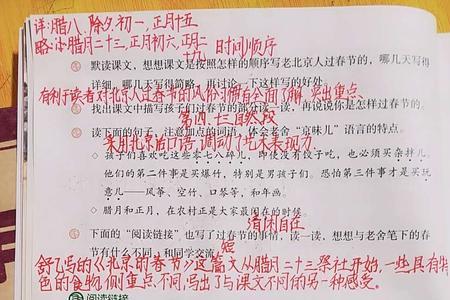 详:腊八、除夕、初一、正月十五
略:小腊月二十三,正月初六,正月
十九 时间顺序
默读课文,想想课文是按照怎样的顺序写老北京人过春节的,哪几天写得
详细,哪几天写得简略,再讨论一下这样写的好处。
有利于读者对北京人过春节的风俗习惯有全面了解,突出重点。
找出课文中描写孩子们过春节的部分读一读,再说说你是怎样过春节的。
第四、七三自然段
读下面的句子,注意加点的词语,体会老舍“京味儿”语言的特点。
采用北京后口语,调动了艺术表现力.
◇ 孩子们喜欢吃这些零七八碎儿,即使没有饺子吃,也必须买杂拌儿。
他们的第二件事是买爆竹,特别是男孩子们。恐怕第三件事才是买玩
意儿——风筝、空竹、口琴等,和年画。
◇ 腊月和正月,在农村正是大家最闲在的时候。
清闲自在
下面的“阅读链接”也写了过春节的事情,读一读,想想与老舍笔下的春
节有什么不同,和同学交流。
短
舒乙写的《北京的春节》这篇文从腊月二十三祭灶开始,一些具有特
色的食物,侧重点不同,写出了与课文不同的另一种感受。
阅读链接